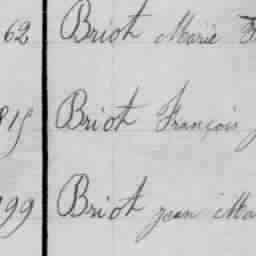 62 Briot Marie
815 Briot François
199 Briot jean Ma